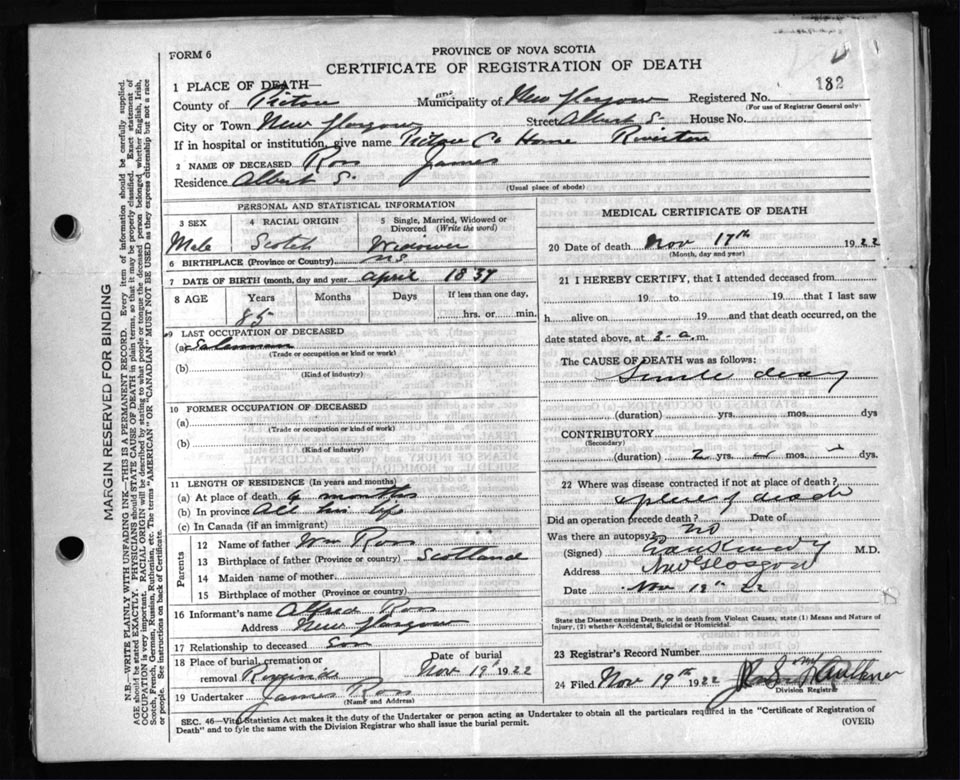 FORM 6
PROVINCE OF NOVA SCOTIA
CERTIFICATE OF REGISTRATION OF DEATH
182
1 PLACE OF DEATH—
County of Pictou and Municipality of New Glasgow Registered No.
(For use of Registrar General only)
City or Town New Glasgow Street Albert S. House No.
If in hospital or institution, give name Pictou Co Home Riverton
2 NAME OF DECEASED Ross James
Residence Albert S.
(Usual place of abode)
PERSONAL AND STATISTICAL INFORMATION
3 SEX
Male
4 RACIAL ORIGIN
Scotch
5 Single, Married, Widowed or Divorced (Write the word)
Widower
6 BIRTHPLACE (Province or Country) NS
7 DATE OF BIRTH (month, day and year) April 1837
8 AGE Years Months Days If less than one day,
85 hrs. or min.
9 LAST OCCUPATION OF DECEASED
(a) Salesman
(Trade or occupation or kind or work)
(b)
(Kind of industry)
10 FORMER OCCUPATION OF DECEASED
(a)
(Trade or occupation or kind of work)
(b)
(Kind of industry)
11 LENGTH OF RESIDENCE (In years and months)
(a) At place of death 6 months
(b) In province All his life
(c) In Canada (if an immigrant)
Parents
12 Name of father Wm Ross
13 Birthplace of father (Province or country) Scotland
14 Maiden name of mother
15 Birthplace of mother (Province or country)
16 Informant's name Alfred Ross
Address New Glasgow
17 Relationship to deceased Son
18 Place of burial, cremation or removal Date of burial
Nov 19th 1922
19 Undertaker James Ross
(Name and Address)
MEDICAL CERTIFICATE OF DEATH
20 Date of death Nov 17th 1922
(Month, day and year)
21 I HEREBY CERTIFY, that I attended deceased from
19 to 19 that I last saw
h alive on 19 and that death occurred, on
date stated above, at 3- a.m.
The CAUSE OF DEATH was as follows:
Senile decay
(duration) yrs. mos. dys
CONTRIBUTORY
(Secondary)
(duration) 2 yrs. - mos. - dys.
22 Where was disease contracted if not at place of death?
place of death
Did an operation precede death? no Date of
Was there an autopsy?
(Signed) Kennedy M.D.
Address New Glasgow
Date Nov 19th 22
State the Disease causing Death, or in death from Violent Causes, state (1) Means and Nature of Injury, (2) whether Accidental, Suicidal or Homicidal.
23 Registrar's Record Number
24 Filed Nov 19th 1922
Division Registrar
SEC. 46—Vital Statistics Act makes it the duty of the Undertaker or person acting as Undertaker to obtain all the particulars required in the "Certificate of Registration of
Death" and to fyle the same with the Division Registrar who shall issue the burial permit.
(OVER)
MARGIN RESERVED FOR BINDING
N.B.—WRITE PLAINLY WITH UNFADING INK—THIS IS A PERMANENT RECORD. Every item of information should be carefully supplied.
AGE should be stated EXACTLY. PHYSICIANS should STATE CAUSE OF DEATH in plain terms, so that it may be properly classified. Exact statement of
OCCUPATION is very important. RACIAL ORIGIN will be described by stating to what people or tongue the deceased person belonged whether English, Irish,
Scotch, French, German, Russian, Ruthenian, etc. The terms "AMERICAN" OR "CANADIAN" MUST NOT BE USED as they express citizenship but not a race
or people. See instructions on back of Certificate.